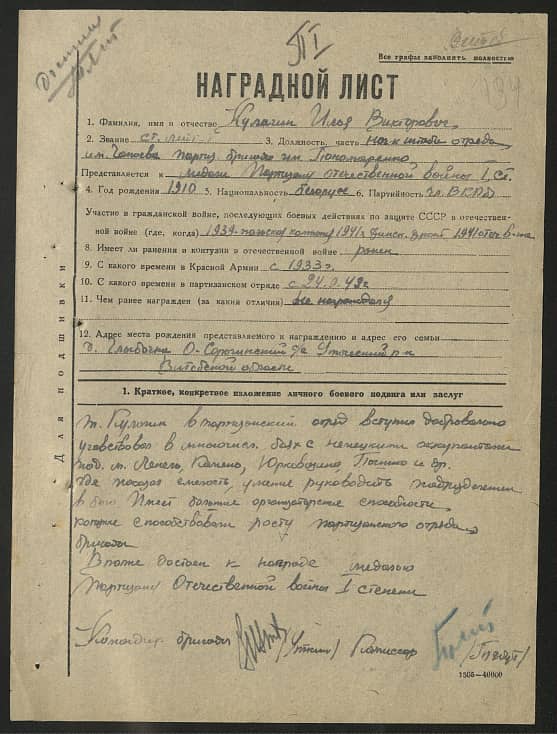 Все графы заполнять полностью
НАГРАДНОЙ ЛИСТ
1. Фамилия, имя и отчество Кулагин Илья Викторович
2. Звание ст. лейт-т 3. Должность, часть нач. штаба отряда
им. Чапаева партиз. бригады им. Пономаренко
Представляется к медали Партизану отечественной войны I ст.
4. Год рождения 1910 5. Национальность белорусс 6. Партийность чл. ВКПб
Участие в гражданской войне, последующих боевых действиях по защите СССР и отечествен-
ной войне (где, когда) 1939
8. Имеет ли ранения и контузии в отечественной войне ранен
9. С какого времени в Красной Армии с 1933 г.
10. С какого времени в партизанском отряде с 42 г
11. Чем ранее награжден (за какия отличия) не награждался
12. Адрес места рождения представляемого к награждению и адрес его семьи
д. Глыбочка с/с Ушачский р-н
Витебской области
Для подшивки
1. Краткое, конкретное изложение личного боевого подвига или заслуг
т. Кулагин в партизанский отряд вступил добровольно
участвовал в многочисл. боях с немецкими оккупантами
под м. Лепель, Камено, и др.
где показал смелость, умение руководить подразделением
в бою Имеет большие организаторские способности,
которые способствовали росту партизанского отряда,
бригады
Вполне достоен к награде медалью
Партизану Отечественной войны I степени
Командир бригады /Уткин/ Комиссар
1505—40000